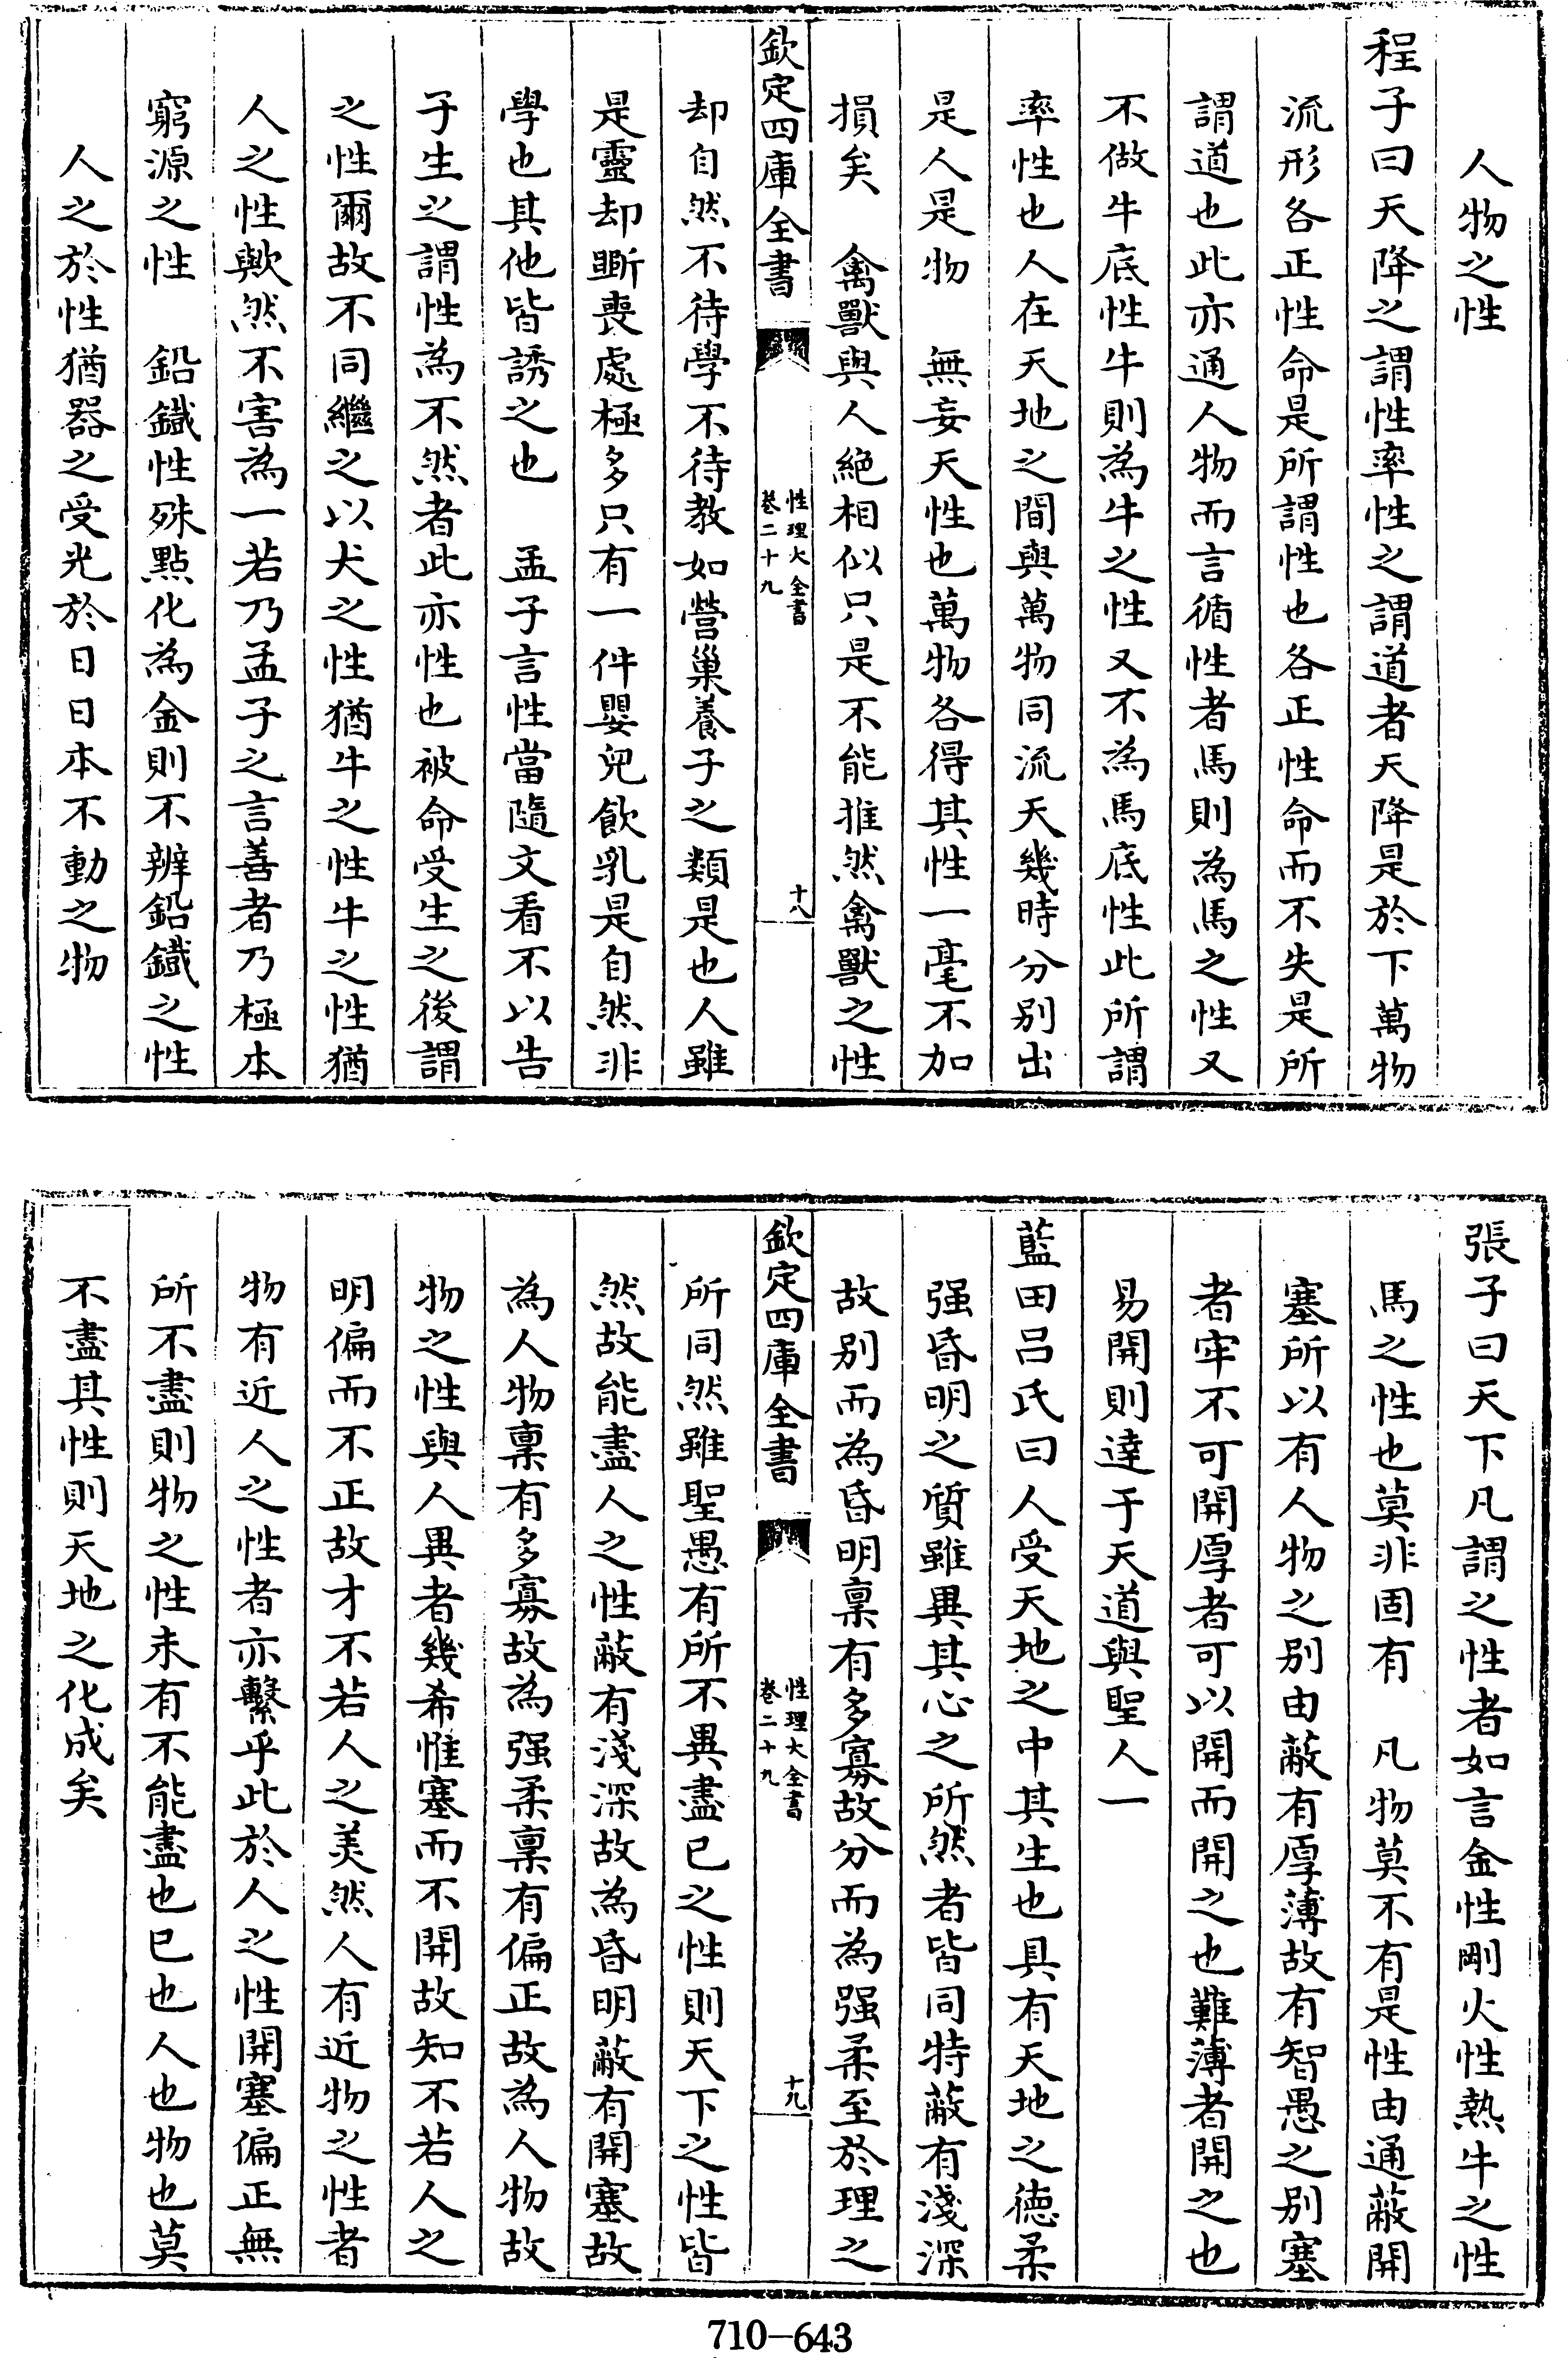 人物之性
程子曰天降之謂性率性之謂道者天降是於下萬物
流形各正性命是所謂性也各正性命而不失是所
謂道也此亦通人物而言循性者馬則為馬之性又
不做牛底性牛則為牛之性又不為馬底性此所謂
率性也人在天地之間與萬物同流天幾時分别出
是人是物　無妄天性也萬物各得其性一毫不加
損矣　禽獸與人絶相似只是不能推然禽獸之性
欽定四庫全書
性理大全書
卷二十九
十八
却自然不待學不待教如營巢養子之類是也人雖
是靈却斲喪處極多只有一件嬰兒飲乳是自然非
學也其他皆誘之也　孟子言性當隨文看不以告
子生之謂性為不然者此亦性也被命受生之後謂
之性爾故不同繼之以犬之性猶牛之性牛之性猶
人之性歟然不害為一若乃孟子之言善者乃極本
窮源之性　鉛鐵性殊點化為金則不辨鉛鐵之性
人之於性猶器之受光於日日本不動之物
張子曰天下凡謂之性者如言金性剛火性熱牛之性
馬之性也莫非固有　凡物莫不有是性由通蔽開
塞所以有人物之别由蔽有厚薄故有智愚之别塞
者牢不可開厚者可以開而開之也難薄者開之也
易開則達于天道與聖人一
藍田吕氏曰人受天地之中其生也具有天地之德柔
强昏明之質雖異其心之所然者皆同特蔽有淺深
故别而為昏明禀有多寡故分而為强柔至於理之
欽定四庫全書
性理大全書
卷二十九
十九
所同然雖聖愚有所不異盡已之性則天下之性皆
然故能盡人之性蔽有淺深故為昏明蔽有開塞故
為人物禀有多寡故為强柔禀有偏正故為人物故
物之性與人異者幾希惟塞而不開故知不若人之
明偏而不正故才不若人之美然人有近物之性者
物有近人之性者亦繫乎此於人之性開塞偏正無
所不盡則物之性未有不能盡也已也人也物也莫
不盡其性則天地之化成矣
710-643